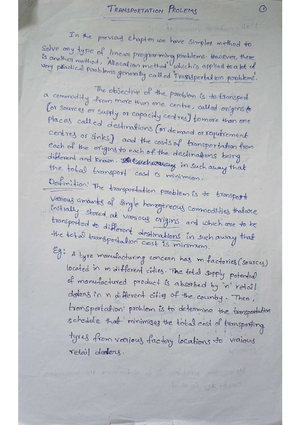 TRANSPORTATION PROLEMS
In the previous chapter we have simplex method to
solve any type of linear programming problems. However there
is another method, Allocation method which is applied to a lot of
very practical problems generally called 'Transportation problems'.
The objective of the problem is to transport
a commodity from more than one centre, called origins
(or sources or supply or capacity centres) to more than one
places called destinations (or demand or requirement
centres or sinks) and the costs of transportation from
each of the origins to each of the destinations being
different and known in such away that
the total transport cost is minimum.
Definition: The transportation problem is to transport
various amounts of single homogeneous commodities that are
initially stored at various origins and which are to be
transported to different destinations in such away that
the total transportation cost is minimum.
Eg: A tyre manufacturing concern has m factories (sources)
located in m different cities. The total supply potential
of manufactured product is absorbed by 'n' retail
dealers in n different cities of the country. Then,
transportation problem is to determine the transportation
schedule that minimises the total cost of transporting
tyres from various factory locations to various
retail dealers.